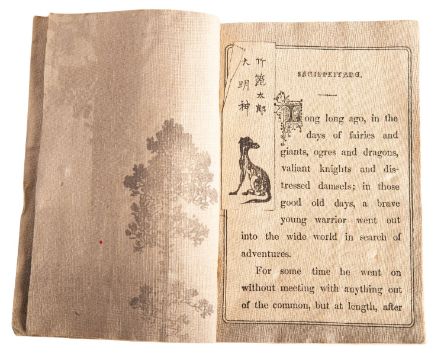 竹篦太郎
大明神
SCHIPPEITARO.
Long long ago, in the
days of fairies and
giants, ogres and dragons,
valiant knights and dis-
tressed damsels; in those
good old days, a brave
young warrior went out
into the wide world in search of
adventures.
For some time he went on
without meeting with anything out
of the common, but at length, after